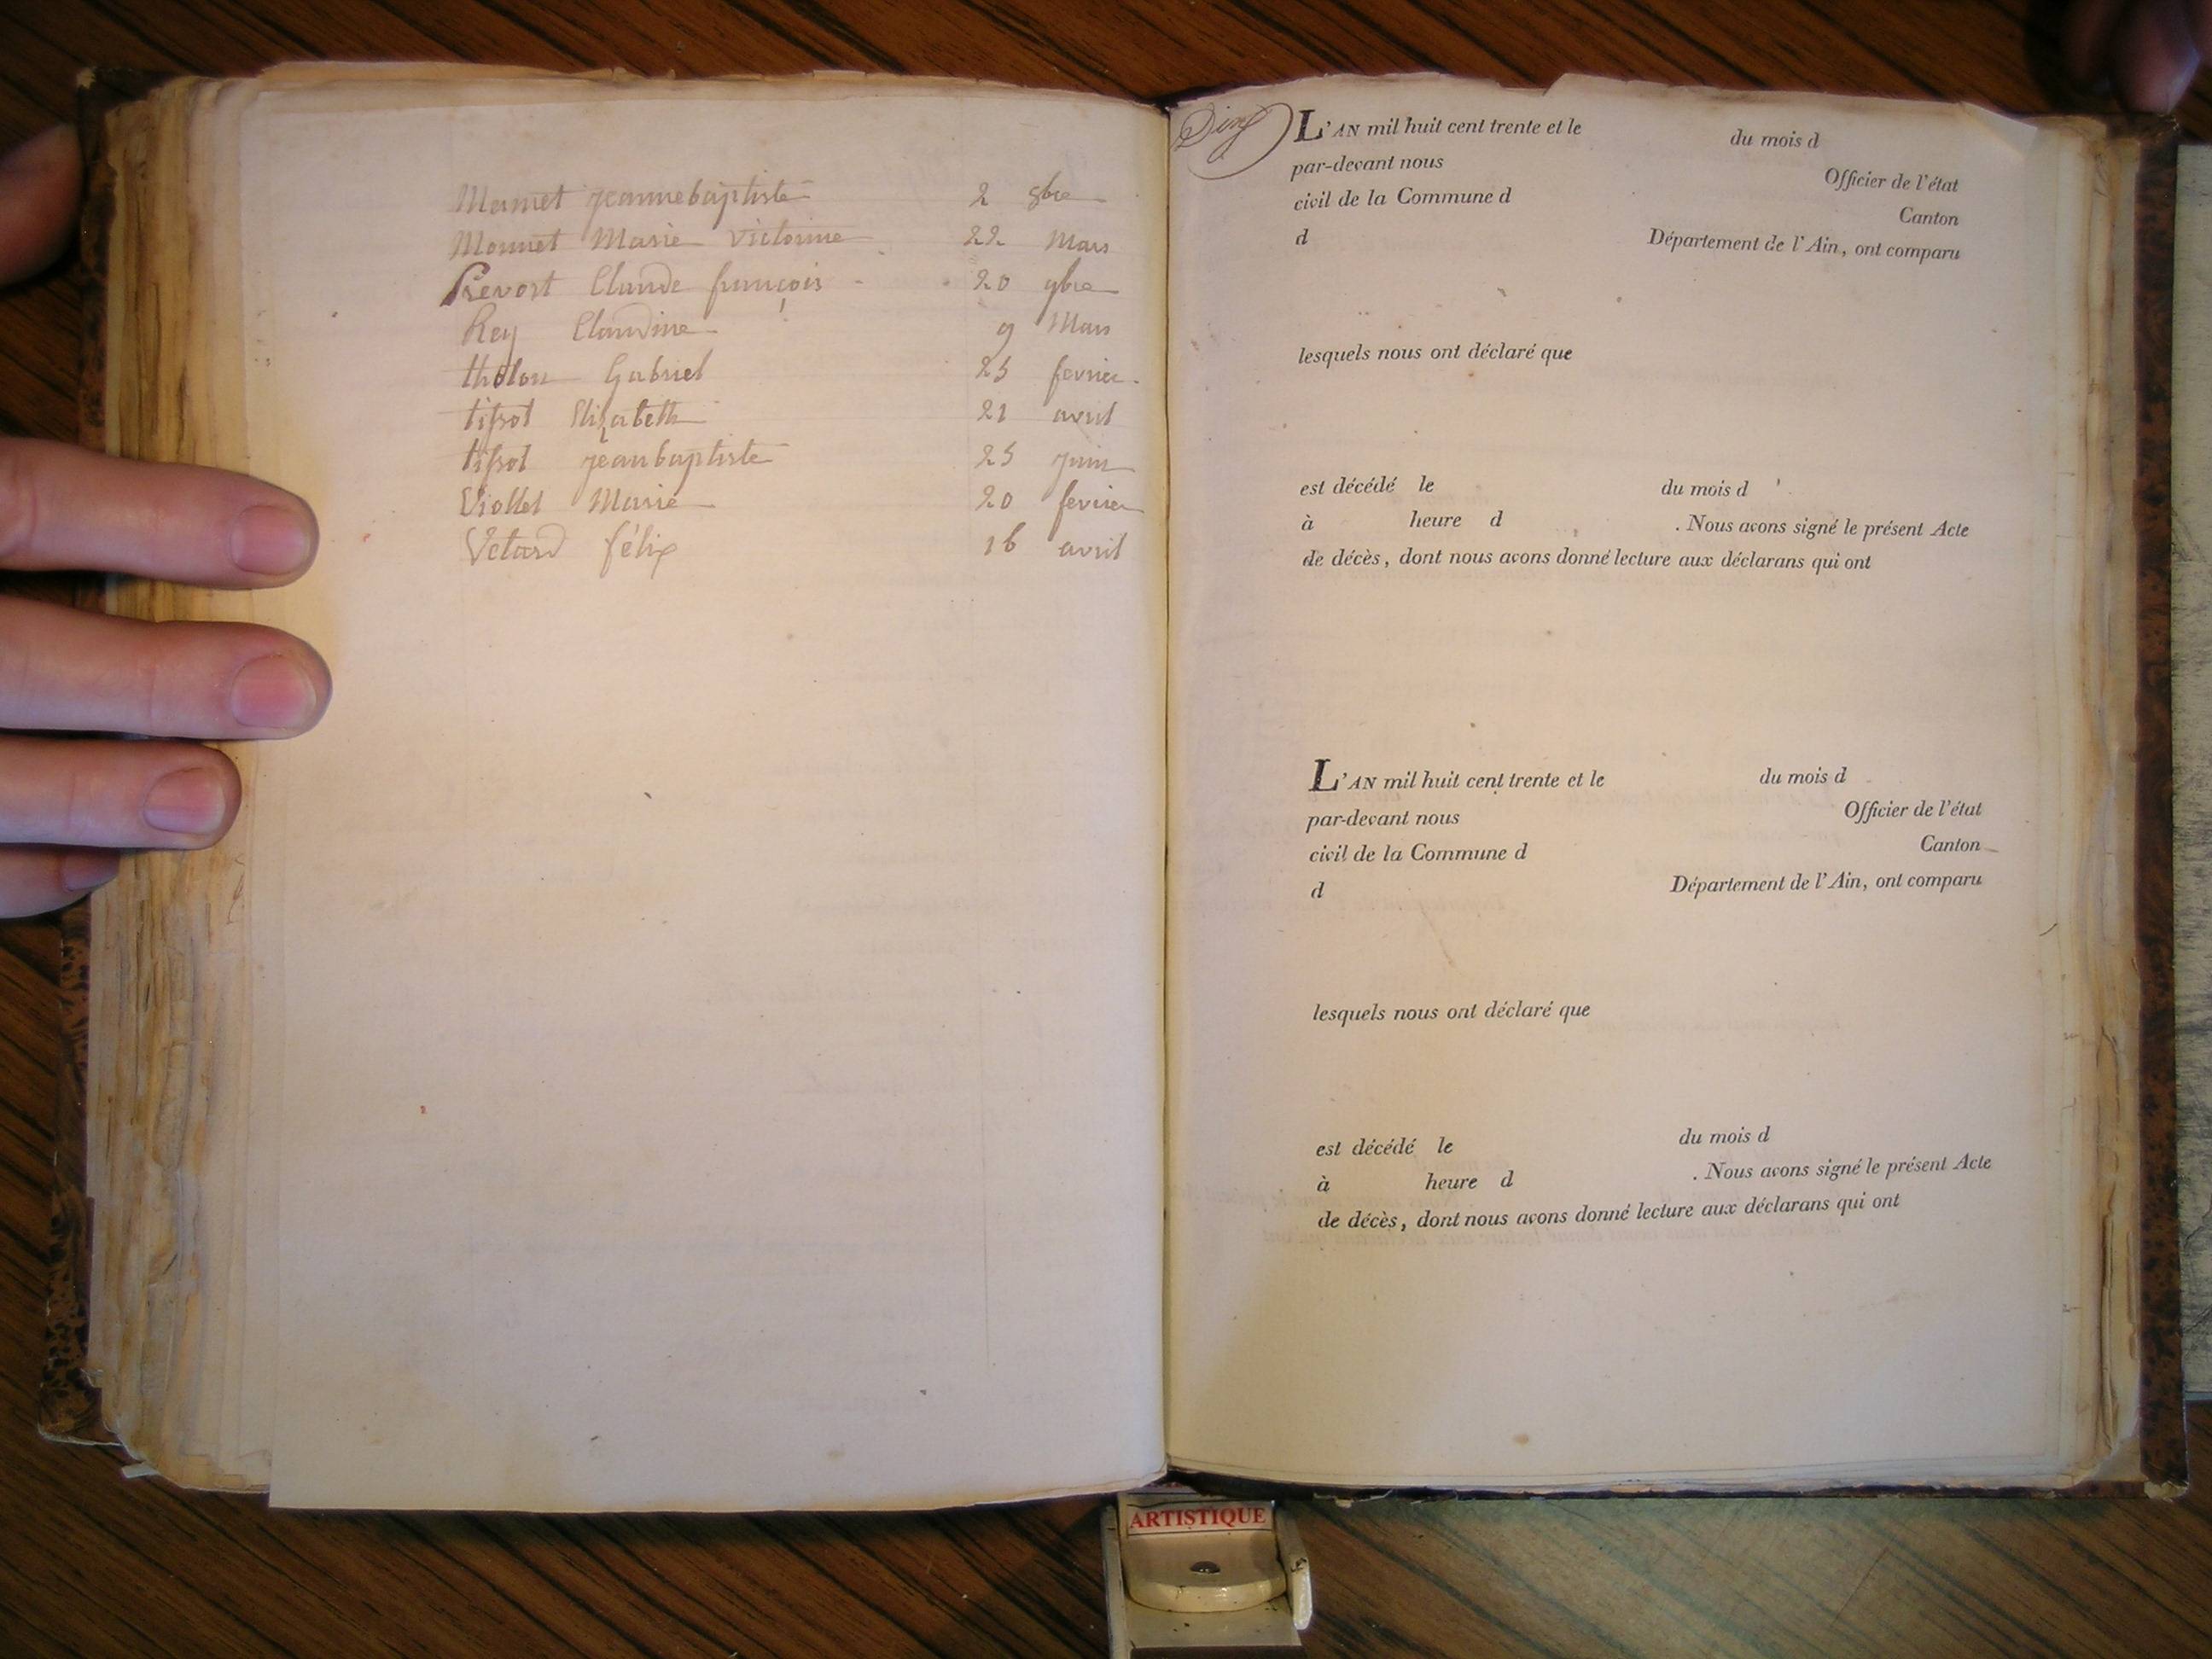 Mamet jeannebaptiste 2 8bre
Monnet Marie victorine 22 Mars
Prevost Claude françois 20 9bre
Rey Claudine 9 Mars
tholon Gabriel 25 fevrier
tissot Elizabeth 21 avril
tissot jeanbaptiste 25 juin
Viollet Marie 20 fevrier
Vetard félix 16 avril
L'AN mil huit cent trente et le du mois d
par-devant nous Officier de l'état
civil de la Commune d Canton
d Département de l'Ain, ont comparu
lesquels nous ont déclaré que
est décédé le du mois d
à heure d . Nous avons signé le présent Acte
de décès, dont nous avons donné lecture aux déclarans qui ont
L'AN mil huit cent trente et le du mois d
par-devant nous Officier de l'état
civil de la Commune d Canton
d Département de l'Ain, ont comparu
lesquels nous ont déclaré que
est décédé le du mois d
à heure d . Nous avons signé le présent Acte
de décès, dont nous avons donné lecture aux déclarans qui ont
ARTISTIQUE